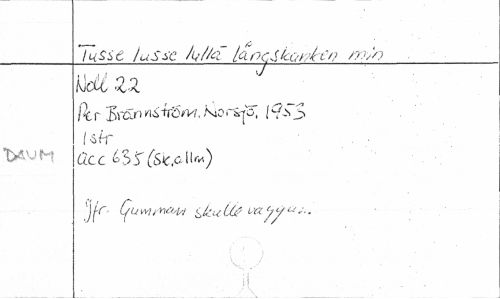 Tusse lusse lullå långskanken min
Noll 22
Per Brännström, Norsjö, 1953
1 str
DAUM
acc 635 (Sk, allm)
Jfr. Gumman skulle vaggan.